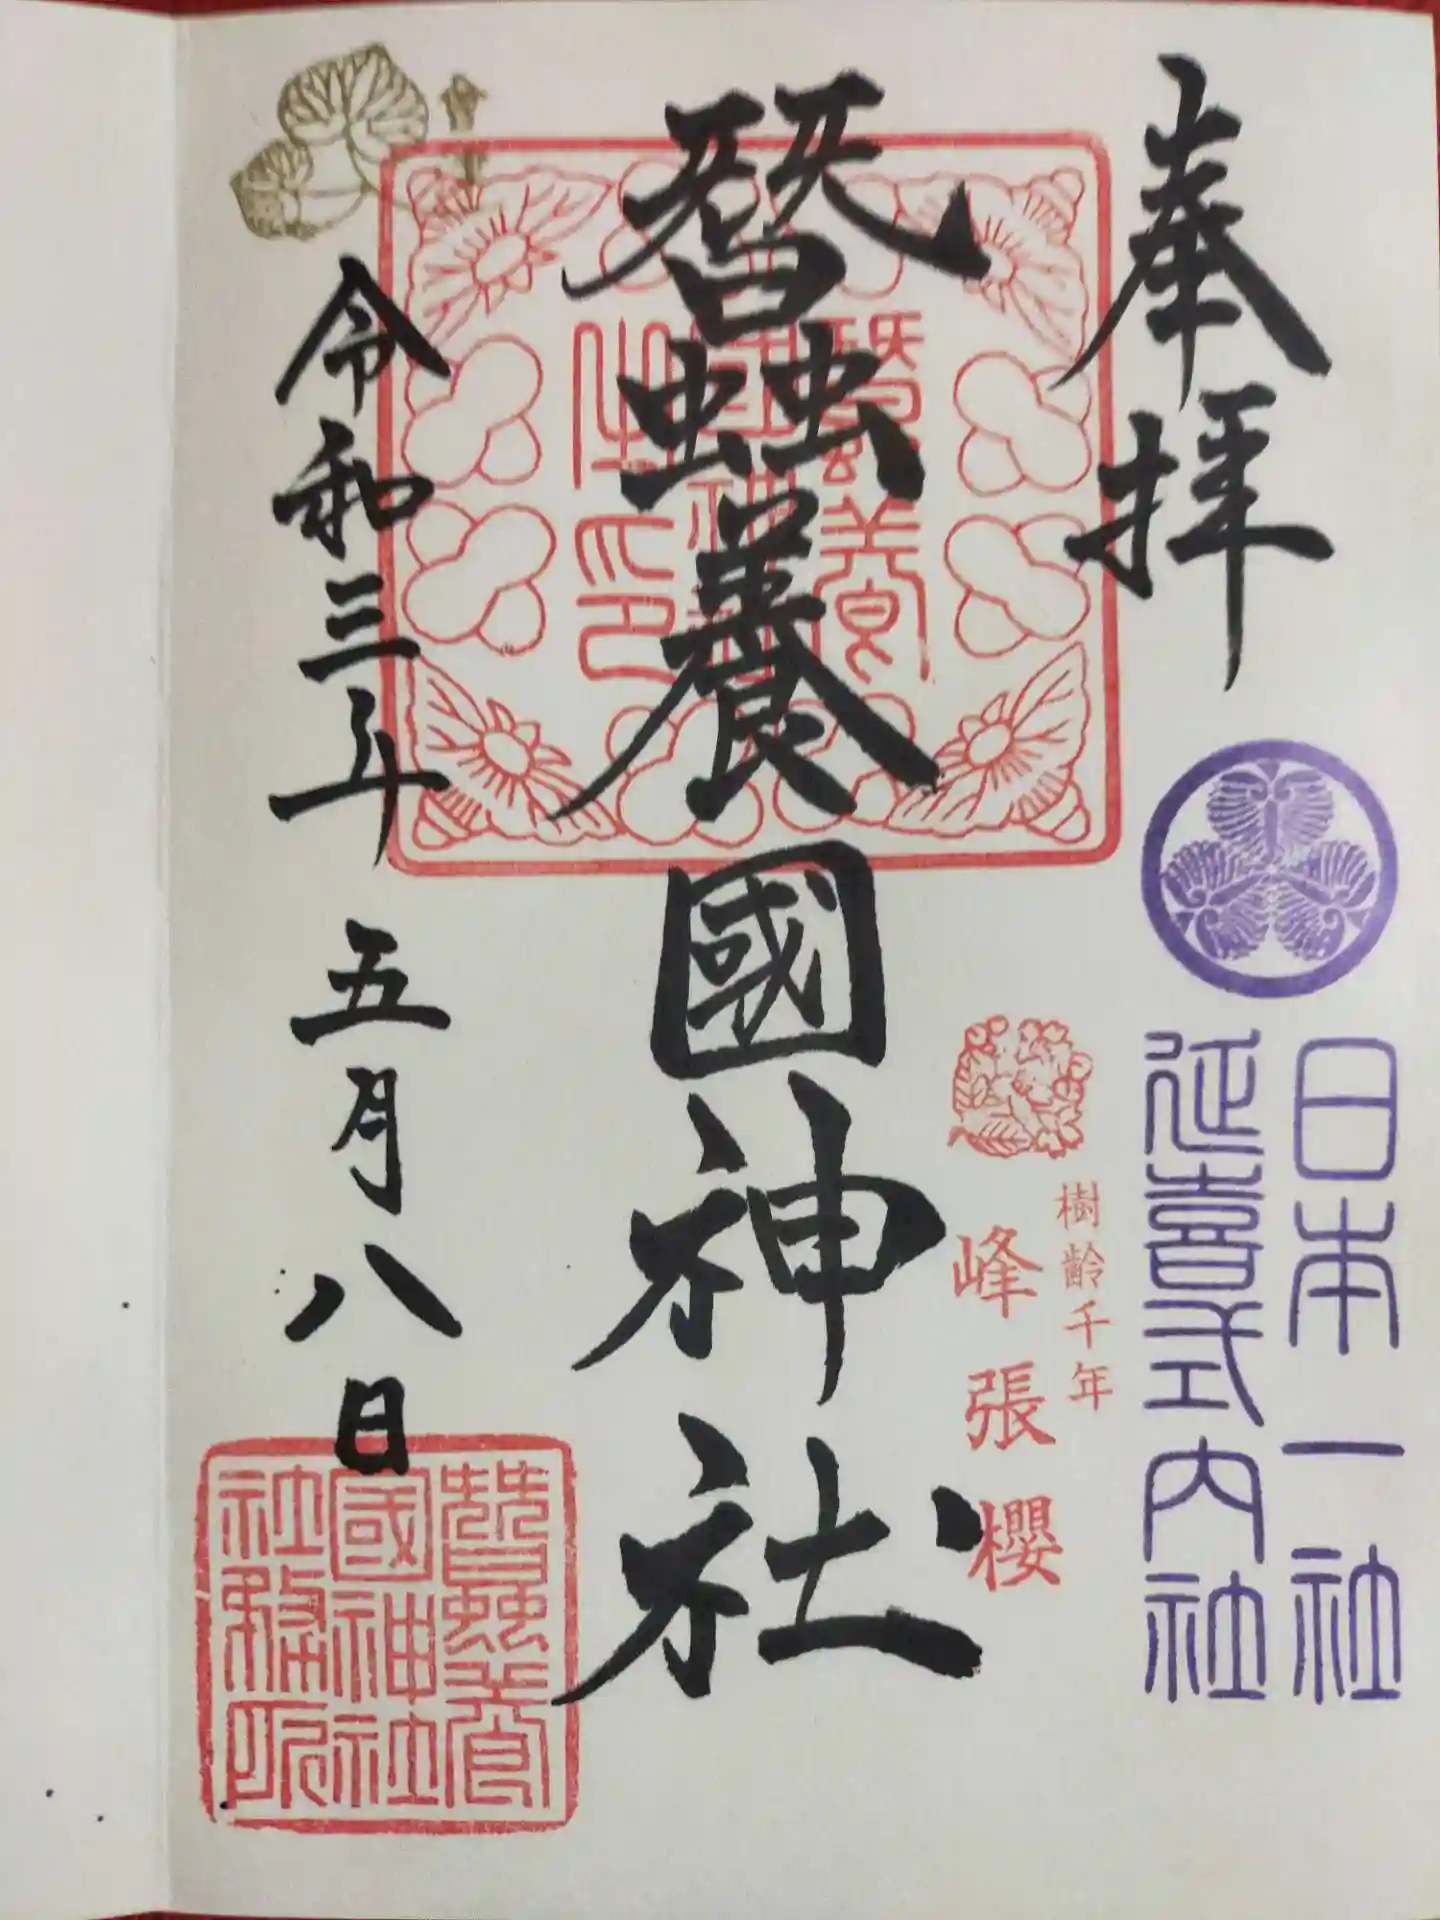 奉拝
日本一社
延喜式内社
樹齢千年
峰張櫻
蠶養國神社
蠶養
國神社
之印
令和三年五月八日
蠶養
國神社
社務所